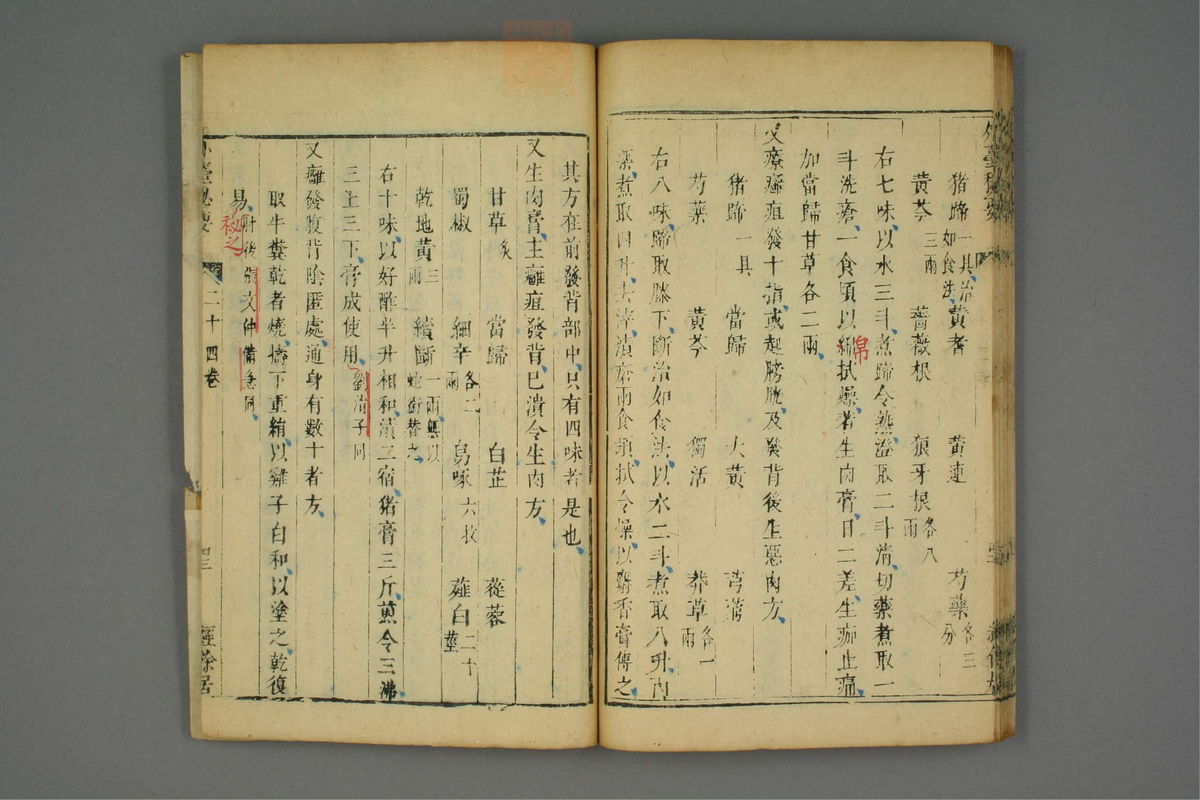 猪蹄一具治如食法 黄耆 黄連 芍藥各三分
黄芩三兩 薔薇根 狼牙根各八兩
右七味以水三斗煮蹄令熟澄取二斗清切藥煮取一
斗洗瘡一食頃以綿拭燥著生肉膏日二差生痂止痛
加當歸甘草各二兩
又療癰疽發十指或起膀胱及發背後生惡肉方
猪蹄一具 當歸 大黄 芎藭
芍藥 黄芩 獨活 莽草各一兩
右八味蹄取膝下斷治如食法以水三斗煮取八升内
藥煮取四升去滓漬瘡兩食頃拭令燥以麝香膏傅之
其方在前發背部中只有四味者是也
又生肉膏主癰疽發背已潰令生肉方
甘草炙 當歸 白芷 蓯蓉
蜀椒 細辛各二兩 烏喙六枚 薤白二十莖
乾地黄三兩 續斷一兩無以蛇銜替之
右十味以好酢半升相和漬二宿猪膏三斤煎令三沸
三上三下膏成使用劉涓子同
又癰發腹背陰匿處通身有數十者方
取牛糞乾者燒擣下重絹以雞子白和以塗之乾復
易肘後張文仲備急同
祕之
外臺秘要 二十四卷 四三 經餘居